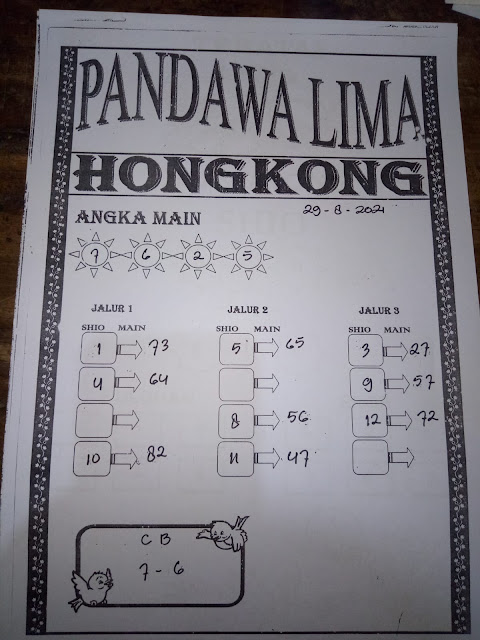 PANDAWA LIMA
HONGKONG
29-8-2021
ANGKA MAIN
7 6 2 5
JALUR 1 JALUR 2 JALUR 3
SHIO MAIN SHIO MAIN SHIO MAIN
1 73 5 65 3 27
4 64 9 57
8 56 12 72
10 82 11 47
C B
7 - 6